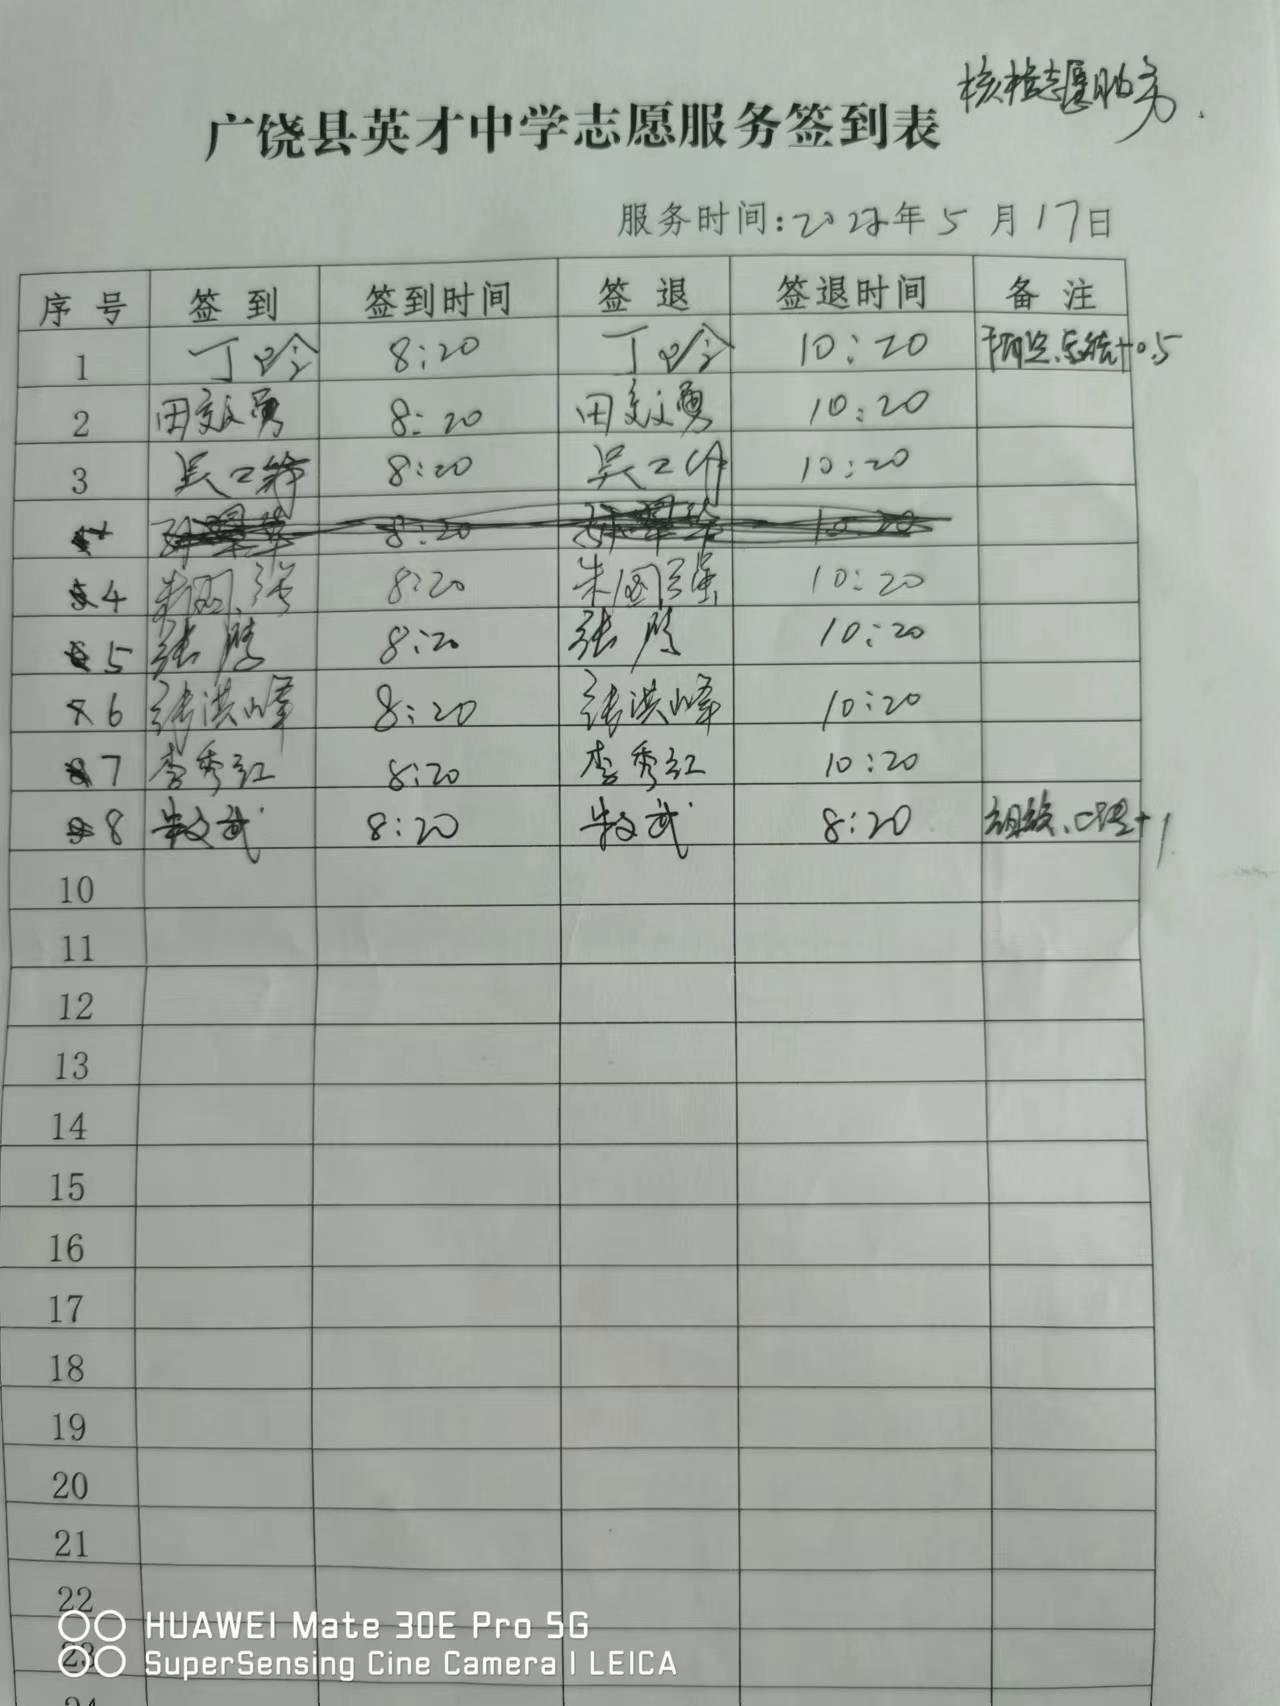 核检志愿服务.
广饶县英才中学志愿服务签到表
服务时间:2022年5月17日
序号 签到 签到时间 签退 签退时间 备注
1 丁吟 8:20 丁吟 10:20 +0.5
2 田效勇 8:20 田效勇 10:20
3 8:20 10:20
8:20 10:20
4 朱国强 8:20 朱国强 10:20
5 张 8:20 张 10:20
6 张洪峰 8:20 张洪峰 10:20
7 李秀红 8:20 李秀红 10:20
8 朱文武 8:20 朱文武 8:20 +1
10
11
12
13
14
15
16
17
18
19
20
21
22
23
24
HUAWEI Mate 30E Pro 5G
SuperSensing Cine Camera | LEICA